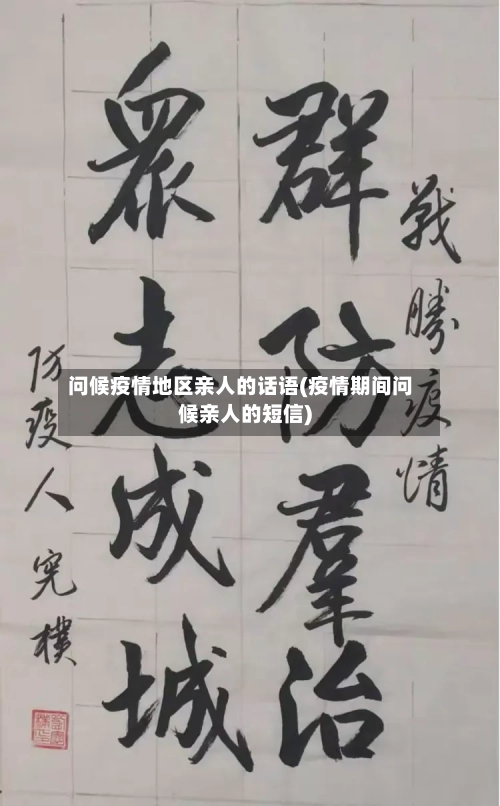 戰勝疫情
群防羣治
衆志成城
防疫人 完樸
问候疫情地区亲人的话语(疫情期间问
候亲人的短信)